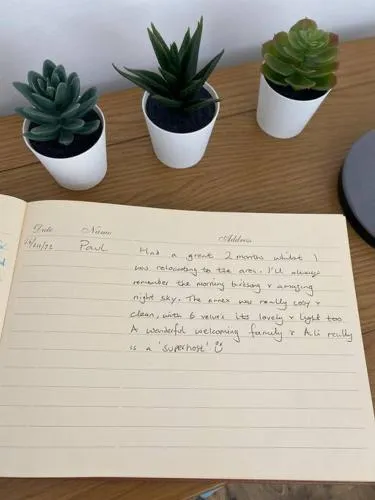 Date Name Address
10/22 Paul Had a great 2 months whilst I
was relocating to the area. I'll always
remember the morning birdsong + amazing
night sky. The annex was really cosy +
clean, with 6 velux its lovely + light too.
A wonderful welcoming family + Ali really
is a 'superhost'! ☺